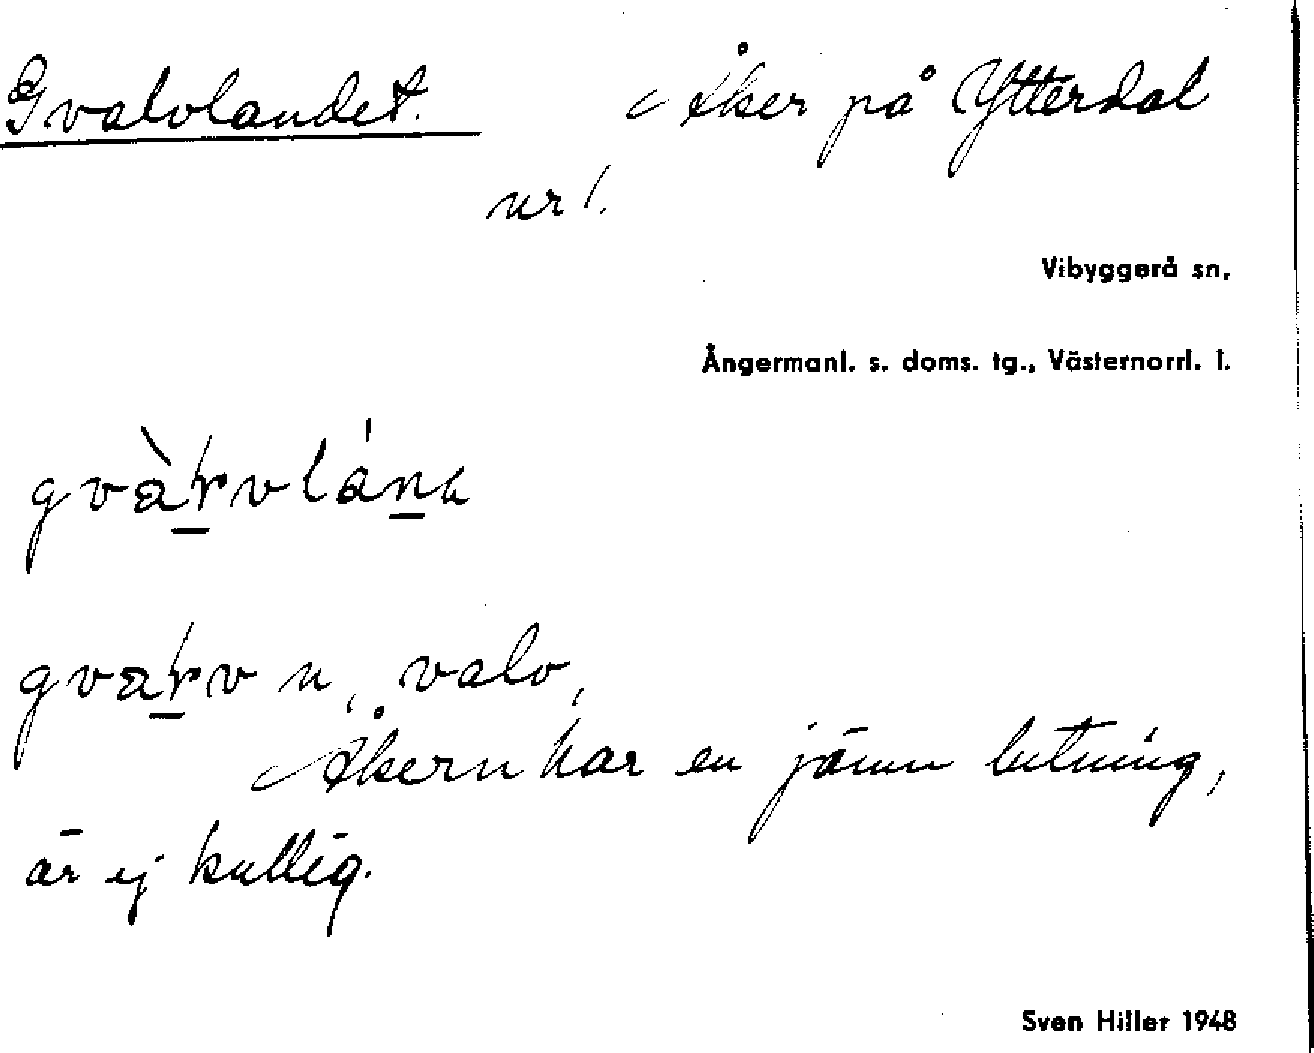 Gvalvlandet. Åker på Ytterdal
nr 1.
Vibyggerå sn.
Ångermanl. s. doms. tg., Västernorrl. l.
gvàrvlánₔ
gvarv n, valv,
Åkern har en jämn lutning,
är ej kullig.
Sven Hiller 1948